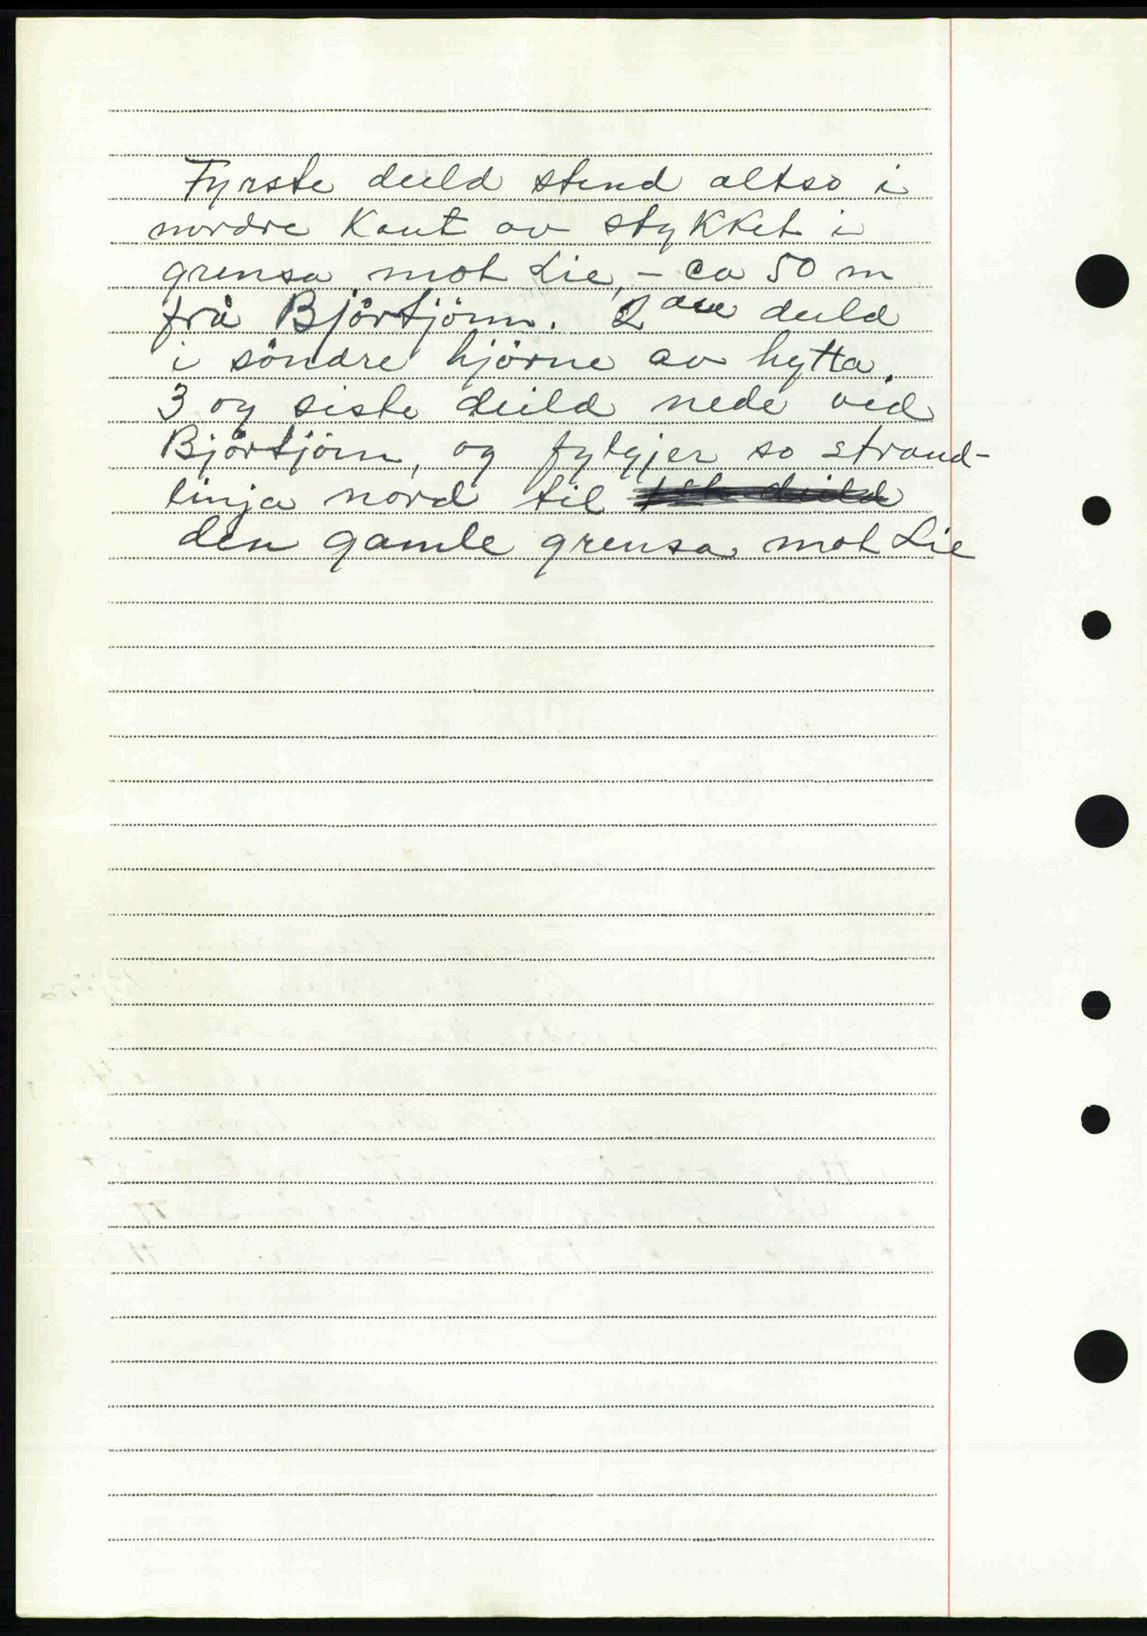 Fyrste deild stend altso i
nordre Kant av stykket i
grensa mot Lie, – ca 50 m
frå Bjørtjönn. 2 dre deild
i söndre hjörne av hytta.
3 og siste deild nede ved
Bjørtjönn, og fylgjer so strand-
linja nord til
den gamle grensa mot Lie